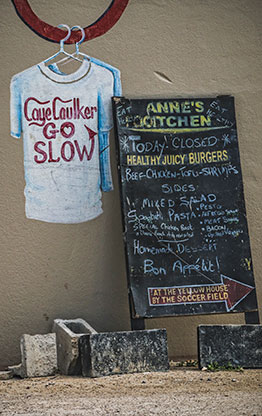 Caye Caulker
GO
SLOW
ANNE'S
KOITCHEN
TODAY: CLOSED
HEALTHY JUICY BURGERS
BEEF-CHICKEN-TOFU-SHRIMPS
SIDES:
MIXED SALAD
PASTA
PESTO
ALFREDO SAUCE
MEAT SAUCE
BACON
Homemade DESSERT
Bon Appétit!
"AT THE YELLOW HOUSE"
BY THE SOCCERFIELD